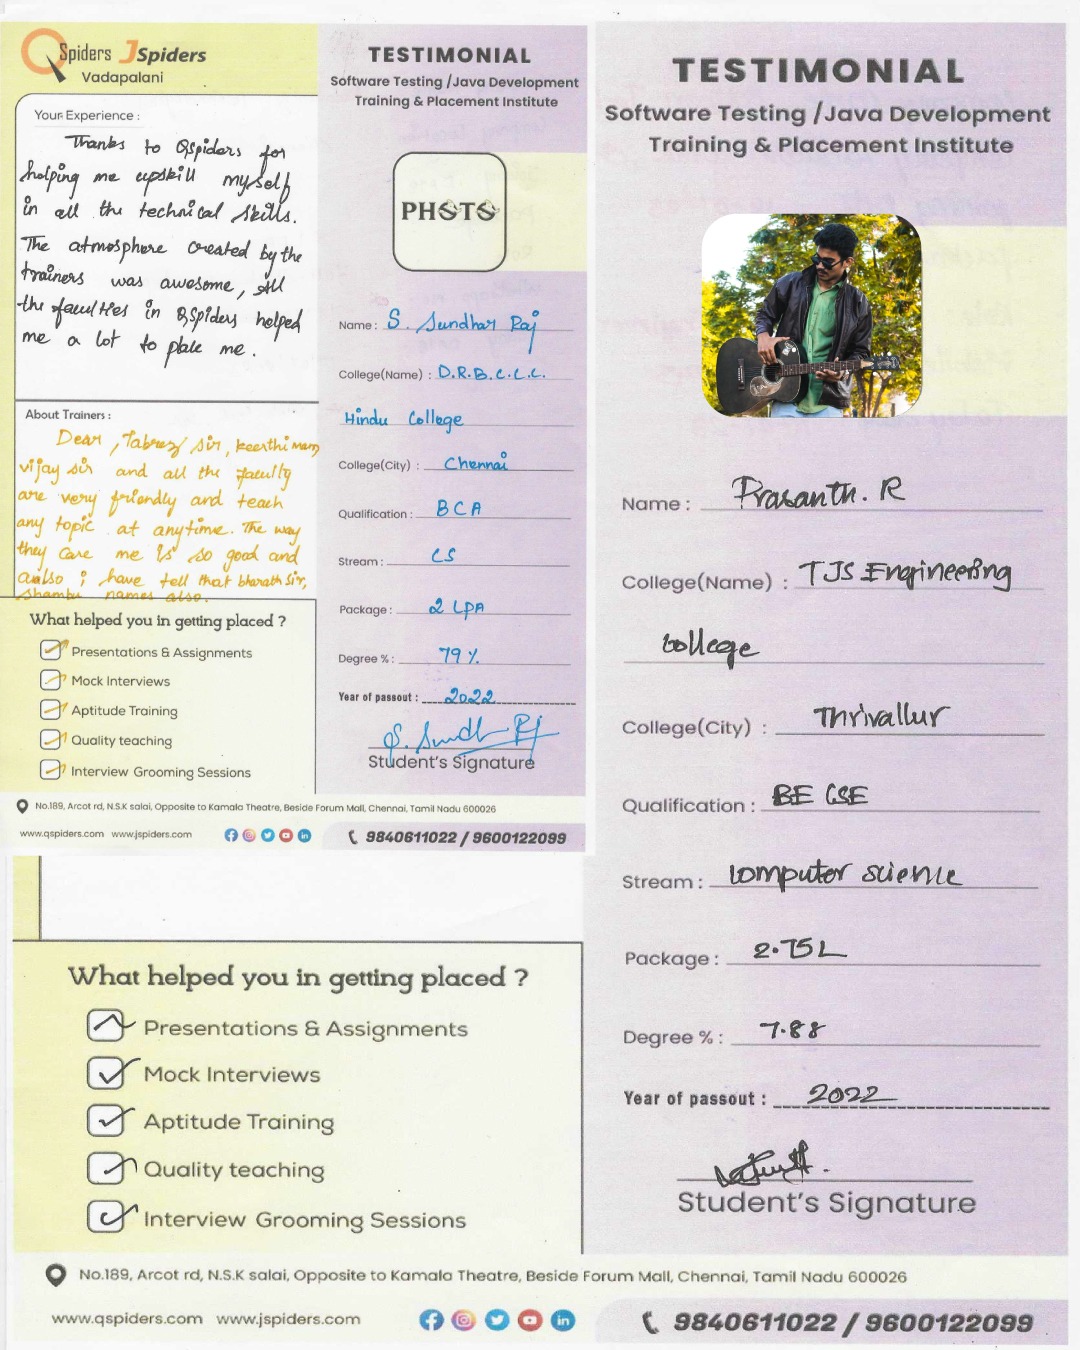 QSpiders JSpiders
Vadapalani
Your Experience :
Thanks to QSpiders for
helping me upskill myself
in all the technical skills.
The atmosphere created by the
trainers was awesome, All
the faculties in QSpiders helped
me a lot to place me.
About Trainers :
Dear, Tabrez sir, keerthi mam
vijay sir and all the faculty
are very friendly and teach
any topic at anytime. The way
they care me is so good and
also i have tell that bharath sir,
shambu names also.
What helped you in getting placed ?
Presentations & Assignments
Mock Interviews
Aptitude Training
Quality teaching
Interview Grooming Sessions
TESTIMONIAL
Software Testing /Java Development
Training & Placement Institute
PHOTO
Name : S. Sundhar Raj
College(Name) : D.R.B.C.C.C.
Hindu College
College(City) : Chennai
Qualification : BCA
Stream : CS
Package : 2 LPA
Degree % : 79 %
Year of passout : 2022
S. Sundh Rj
Student's Signature
No.189, Arcot rd, N.S.K salai, Opposite to Kamala Theatre, Beside Forum Mall, Chennai, Tamil Nadu 600026
www.qspiders.com www.jspiders.com
9840611022 / 9600122099
TESTIMONIAL
Software Testing /Java Development
Training & Placement Institute
Name : Prasanth. R
College(Name) : TJS Engineering
college
College(City) : Thrivallur
Qualification : BE CSE
Stream : computer science
Package : 2.75L
Degree % : 7.88
Year of passout : 2022
Student's Signature
What helped you in getting placed ?
Presentations & Assignments
Mock Interviews
Aptitude Training
Quality teaching
Interview Grooming Sessions
No.189, Arcot rd, N.S.K salai, Opposite to Kamala Theatre, Beside Forum Mall, Chennai, Tamil Nadu 600026
www.qspiders.com www.jspiders.com
9840611022 / 9600122099